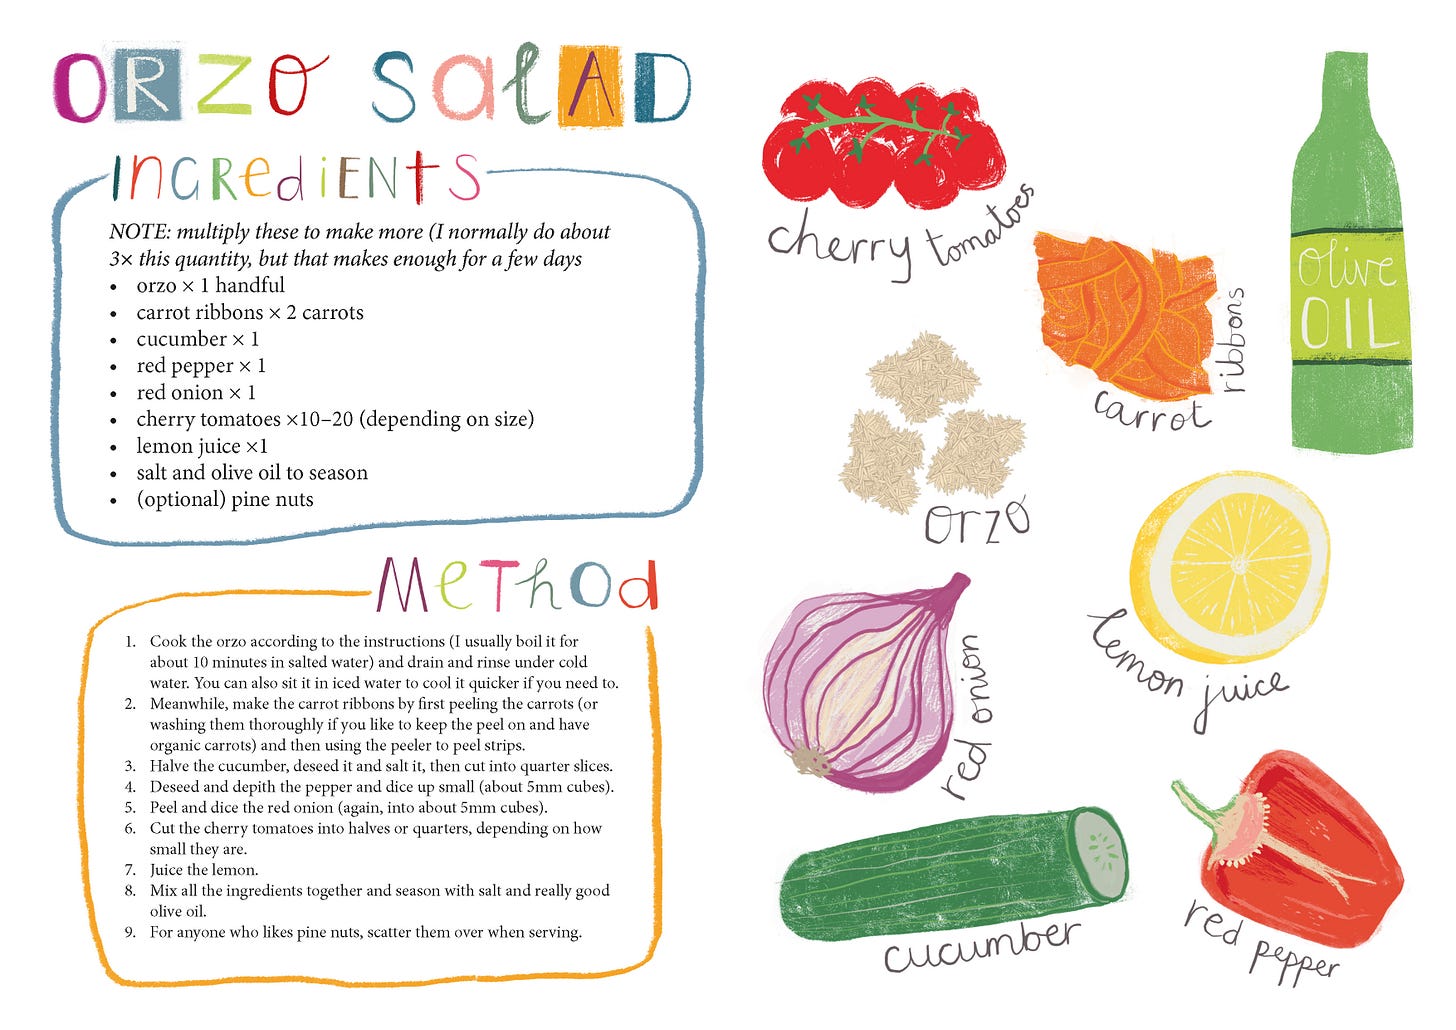 ORZO SALAD
INGREDIENTS
NOTE: multiply these to make more (I normally do about
3× this quantity, but that makes enough for a few days
• orzo × 1 handful
• carrot ribbons × 2 carrots
• cucumber × 1
• red pepper × 1
• red onion × 1
• cherry tomatoes ×10–20 (depending on size)
• lemon juice ×1
• salt and olive oil to season
• (optional) pine nuts
MeThOd
1. Cook the orzo according to the instructions (I usually boil it for
about 10 minutes in salted water) and drain and rinse under cold
water. You can also sit it in iced water to cool it quicker if you need to.
2. Meanwhile, make the carrot ribbons by first peeling the carrots (or
washing them thoroughly if you like to keep the peel on and have
organic carrots) and then using the peeler to peel strips.
3. Halve the cucumber, deseed it and salt it, then cut into quarter slices.
4. Deseed and depith the pepper and dice up small (about 5mm cubes).
5. Peel and dice the red onion (again, into about 5mm cubes).
6. Cut the cherry tomatoes into halves or quarters, depending on how
small they are.
7. Juice the lemon.
8. Mix all the ingredients together and season with salt and really good
olive oil.
9. For anyone who likes pine nuts, scatter them over when serving.
cherry tomatoes
carrot ribbons
olive
OIL
orzo
lemon juice
red onion
cucumber
red pepper